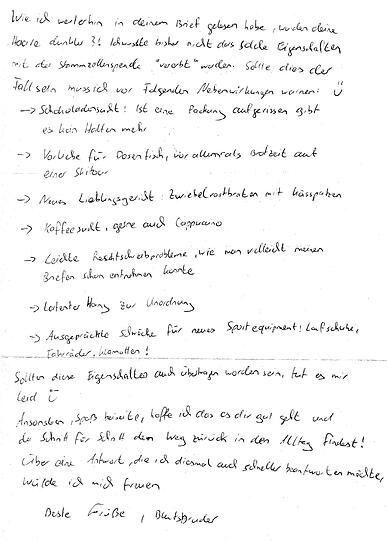 Wie ich weiterhin in deinem Brief gelesen habe, wurden deine
Haare dunkler?! Ich wusste bisher nicht das solche Eigenschaften
mit der Stammzellenspende "vererbt" werden. Sollte dies der
Fall sein muss ich vor folgenden Nebenwirkungen warnen:
-> Schokoladensucht! Ist eine Packung aufgerissen gibt
es kein Halten mehr
-> Vorliebe für Dosenfisch, vor allem als Brotzeit auf
einer Skitour
-> Neues Lieblingsgericht: Zwiebelrostbraten mit Kässpatzen
-> Kaffeesucht, gerne auch Cappuccino
-> Leichte Rechtschreibprobleme, wie man vielleicht meinen
Briefen schon entnehmen konnte
-> Latenter Hang zur Unordnung
-> Ausgeprägte Schwäche für neues Sportequipment! Laufschuhe,
Fahrräder, Klamotten!
Sollten diese Eigenschaften auch übertragen worden sein, tut es mir
leid
Ansonsten, Spaß beiseite, hoffe ich das es dir gut geht und
du Schritt für Schritt den Weg zurück in den Alltag findest!
Über eine Antwort, die ich diesmal auch schneller beantworten möchte,
würde ich mich freuen
Beste Grüße, Blutsbruder